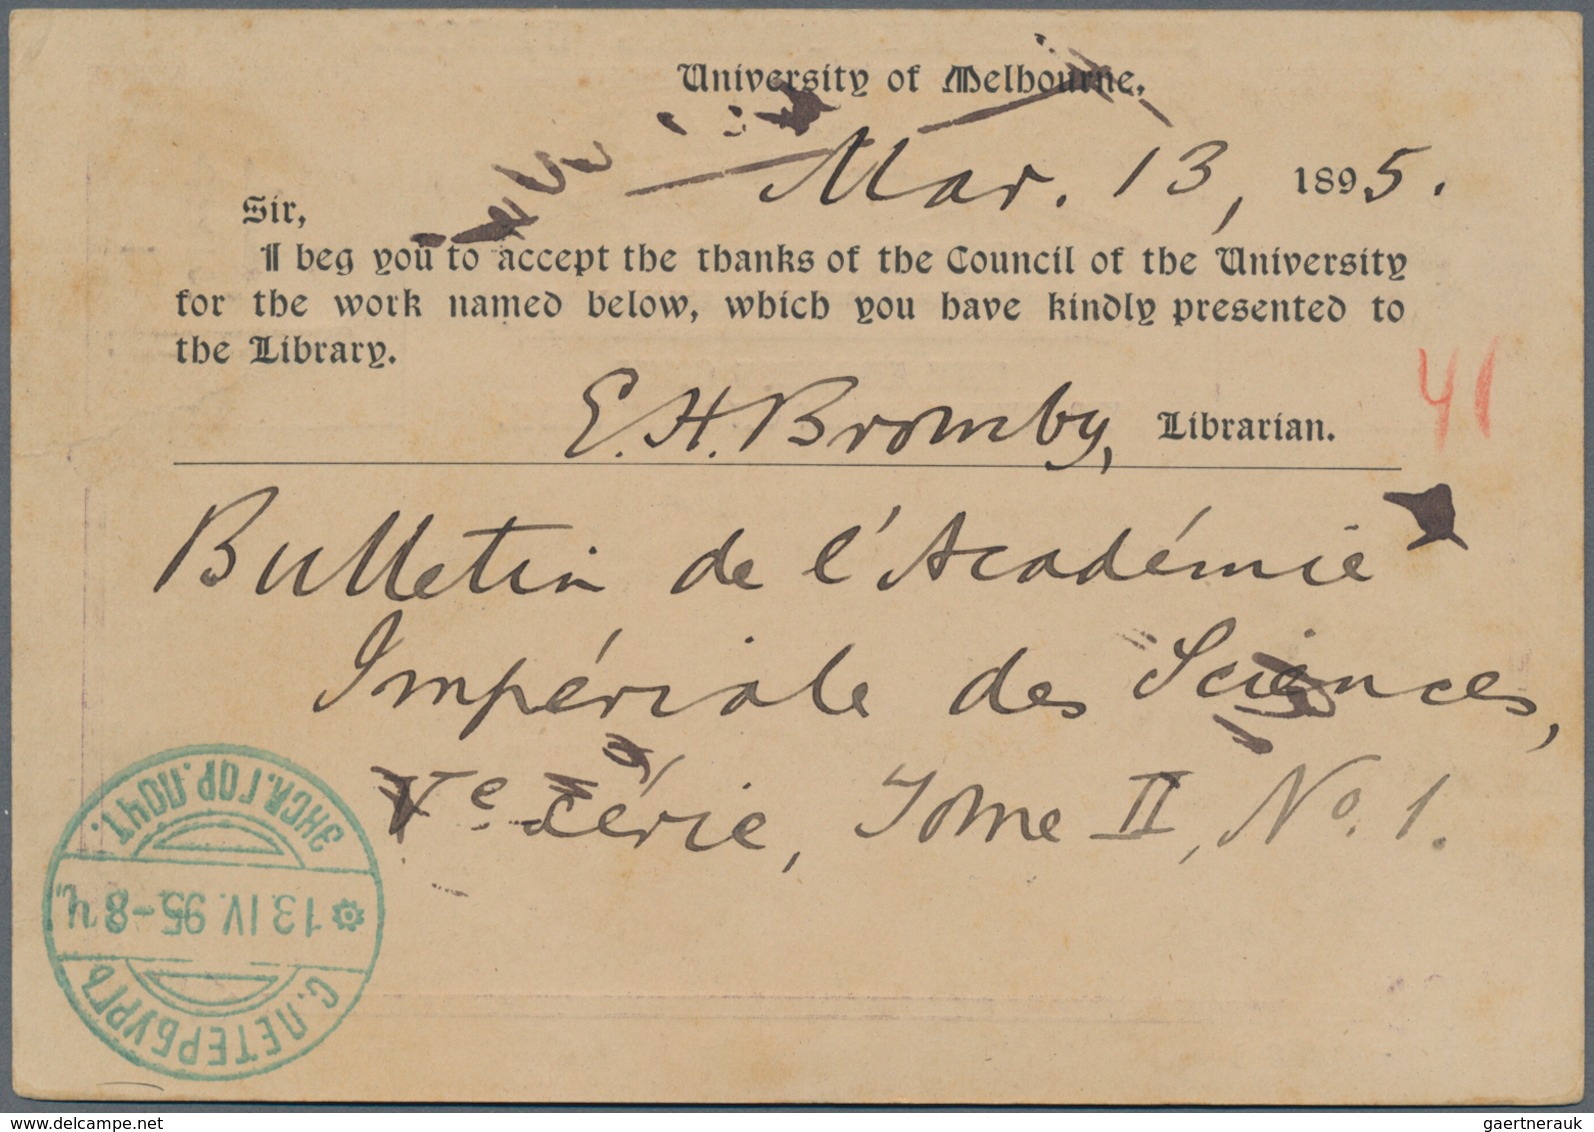 University of Melbourne.
Mar. 13, 1895.
Sir,
I beg you to accept the thanks of the Council of the University
for the work named below, which you have kindly presented to
the Library.
E. H. Bromby, Librarian.
41
Bulletin de l'Académie
Impériale des Sciences,
Ve série, Tome II, No. 1.
С. ПЕТЕРБУРГЪ
13.IV.95-8 Ч.
ЭКСП. ГОР. ПОЧТ.
gaertnerauk